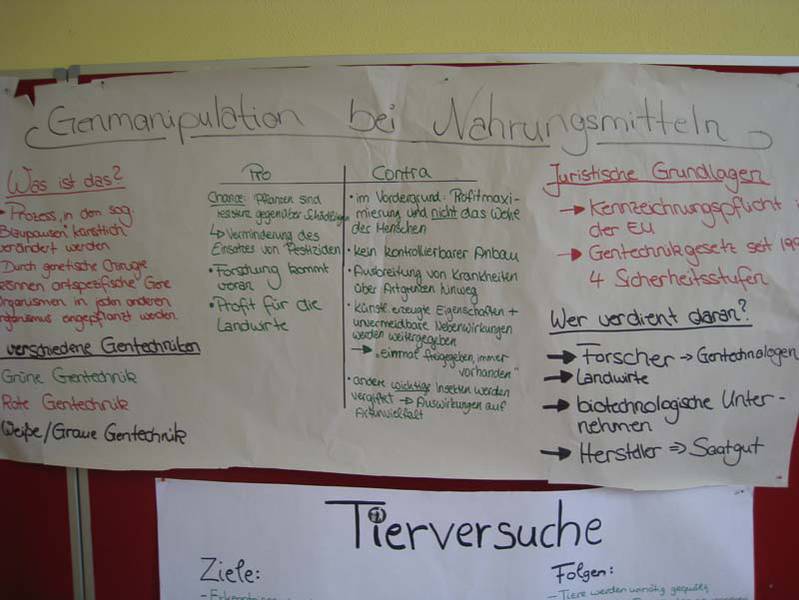 Genmanipulation bei Nahrungsmitteln
Was ist das?
Prozess, in dem sog.
"Blaupausen" künstlich
verändert werden
Durch genetische Chirurgie
können artspezifische Gene
Organismen in jeden anderen
Organismus eingepflanzt werden
verschiedene Gentechniken
Grüne Gentechnik
Rote Gentechnik
Weiße/Graue Gentechnik
Pro
Chance: Pflanzen sind
resistent gegenüber Schädlingen
↳ Verminderung des
Einsatzes von Pestiziden
• Forschung kommt
voran
• Profit für die
Landwirte
Contra
• im Vordergrund: Profitmaxi-
mierung und nicht das Wohle
des Menschen
• kein kontrollierbarer Anbau
• Ausbreitung von Krankheiten
über Artgrenzen hinweg
• künstl. erzeugte Eigenschaften +
unvermeidbare Nebenwirkungen
werden weitergegeben
→ "einmal freigegeben, immer
vorhanden"
• andere wichtige Insekten werden
vergiftet → Auswirkungen auf
Artenvielfalt
Juristische Grundlagen
→ Kennzeichnungspflicht
der EU
→ Gentechnikgesetz seit 199
4 Sicherheitsstufen
Wer verdient daran?
→ Forscher → Gentechnologen
→ Landwirte
→ biotechnologische Unter-
nehmen
→ Hersteller ⇒ Saatgut
Tierversuche
Ziele:
Folgen:
- Tiere werden unnötig gequält